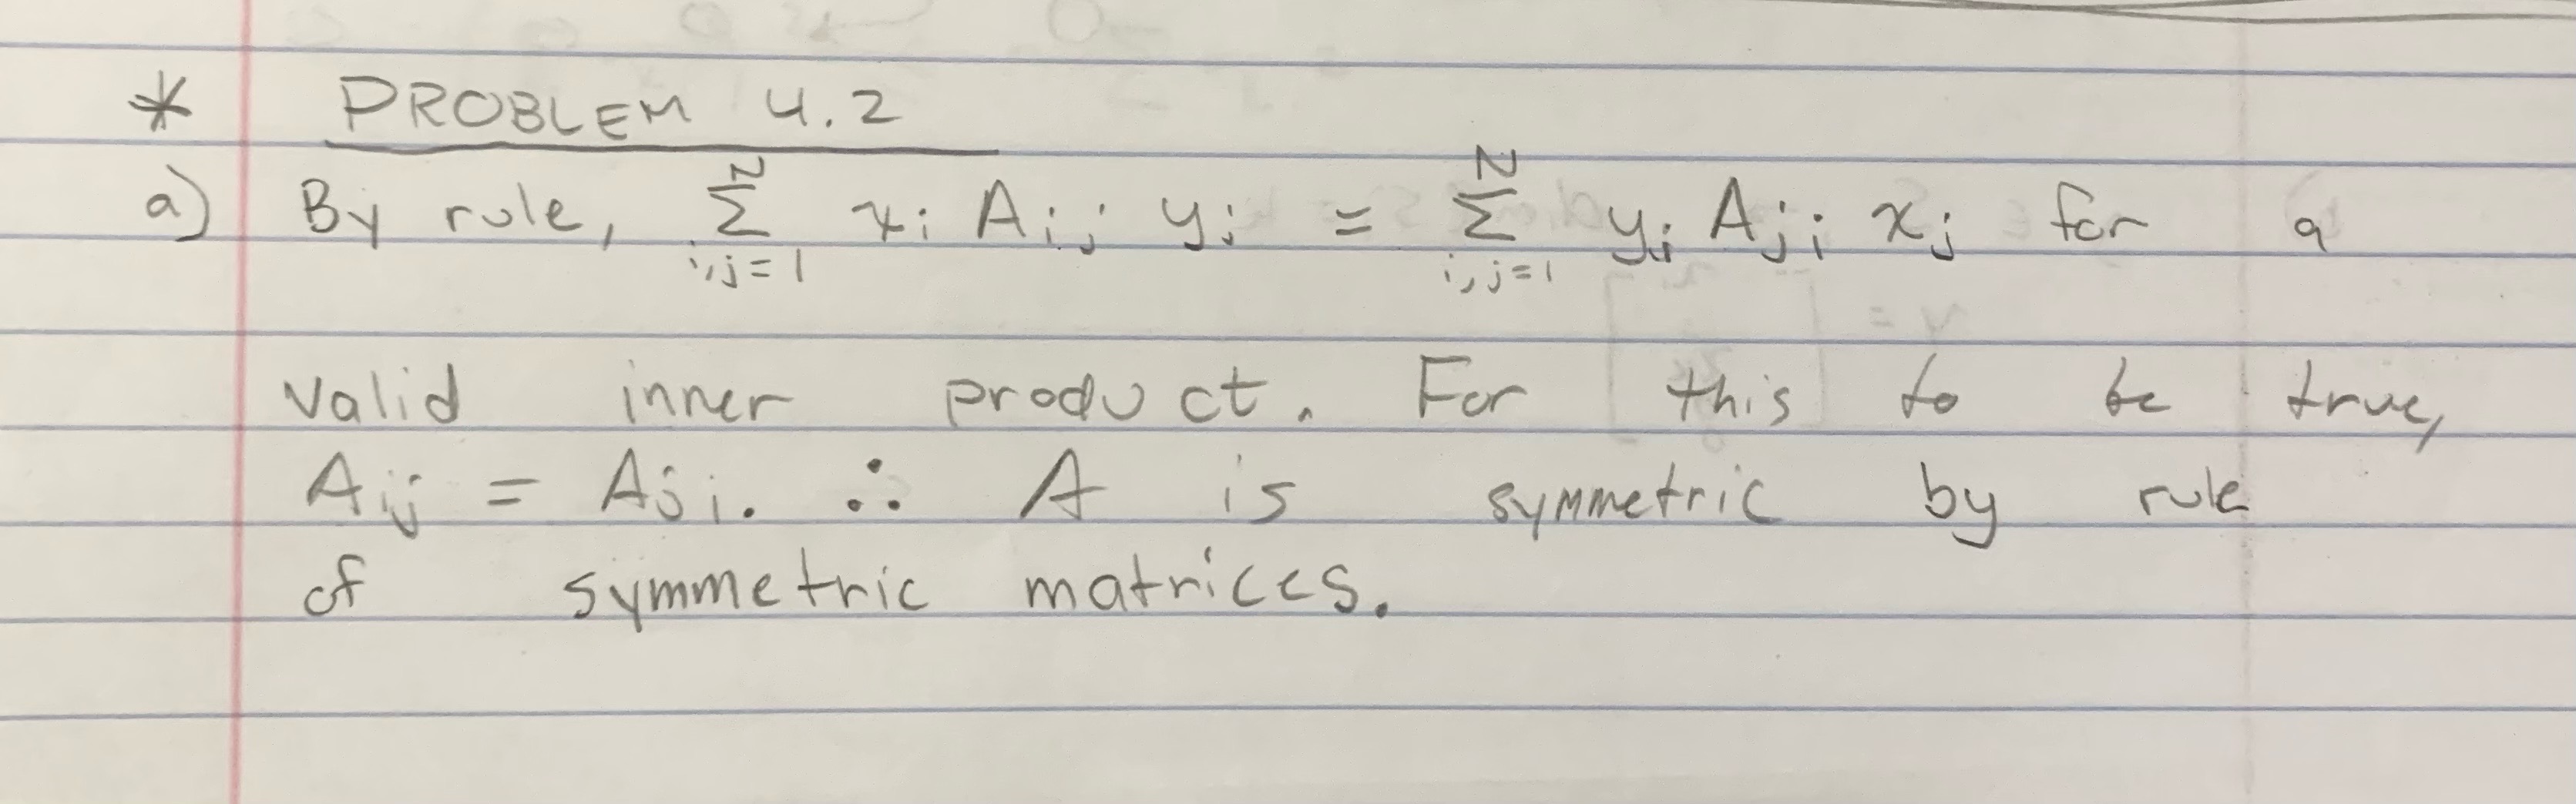 * PROBLEM 4.2
a) By rule, N Σ i,j=1 xi Aij yj = N Σ i,j=1 yi Aji xj for a
valid inner product. For this to be true,
Aij = Aji. ∴ A is symmetric by rule
of symmetric matrices.